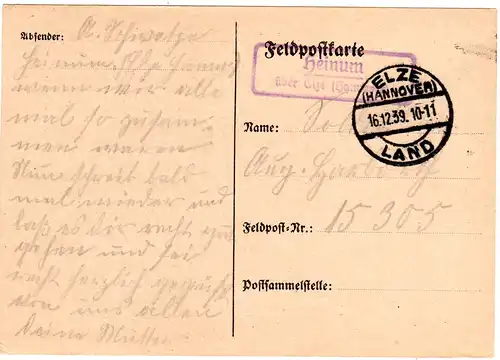 Absender: A. Schwetze
Heinum
wenn wir alle
mal so zusam-
men waren
Nun schreib bald
mal wieder und
laß es dir recht gut
gehen und sei
recht herzlich gegrüßt
von uns allen
deine Mutter
Feldpostkarte
Heinum
über Elze
ELZE
(HANNOVER)
16.12.39. 10-11
LAND
Name:
Aug.
Feldpost-Nr.: 15305
Postsammelstelle: